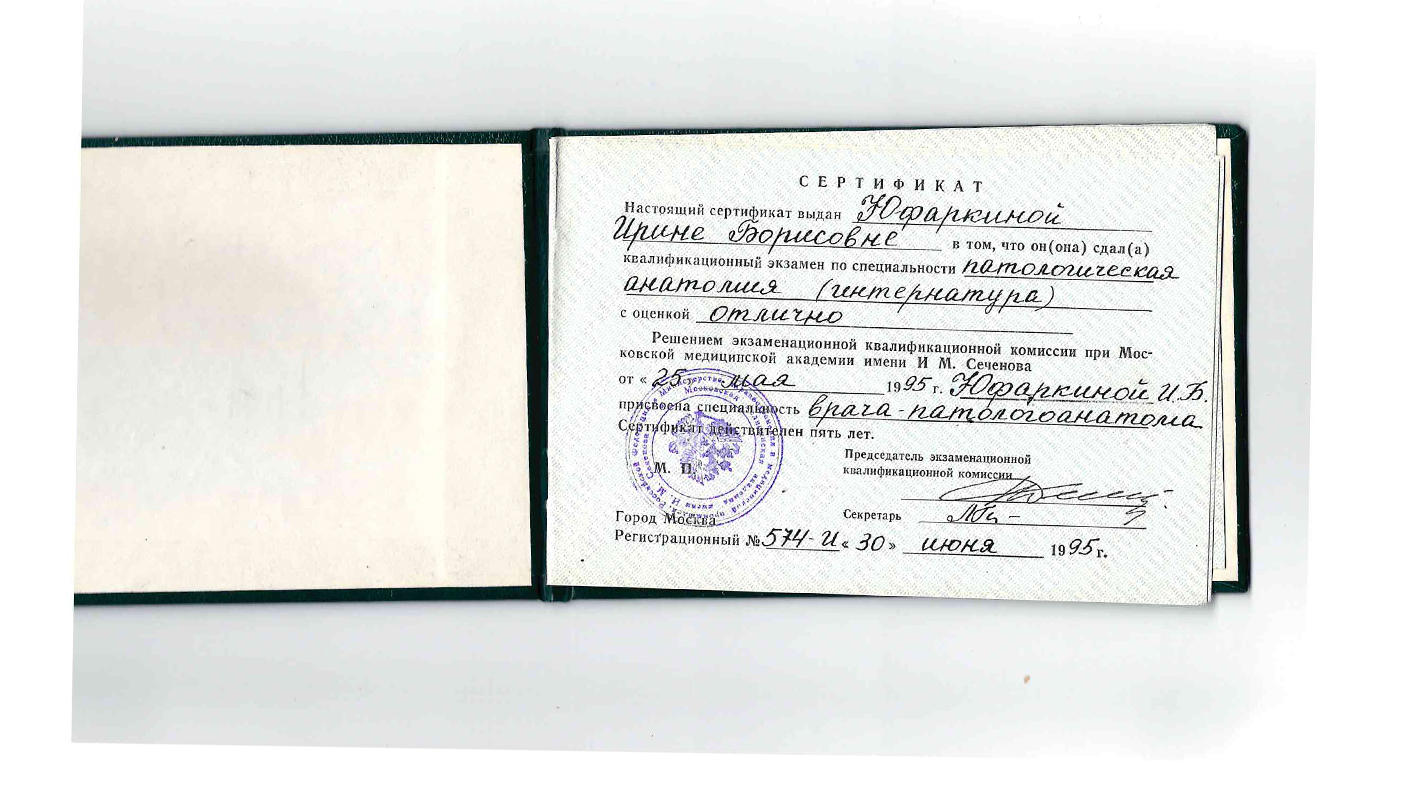 СЕРТИФИКАТ
Настоящий сертификат выдан Юфаркиной
Ирине Борисовне в том, что он(она) сдал(а)
квалификационный экзамен по специальности патологическая
анатомия (интернатура)
с оценкой отлично
Решением экзаменационной квалификационной комиссии при Мос-
ковской медицинской академии имени И М. Сеченова
от « 25 » мая 1995 г. Юфаркиной И.Б.
присвоена специальность врача-патологоанатома
Сертификат действителен пять лет.
Председатель экзаменационной
квалификационной комиссии
М. П.
Секретарь
Город Москва
Регистрационный № 574-И « 30 » июня 1995 г.